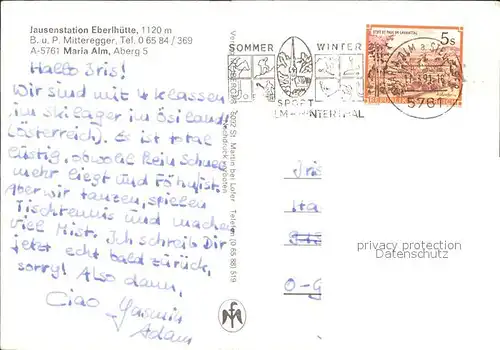 Jausenstation Eberlhütte, 1120 m
B. u. P. Mitteregger, Tel. 0 65 84 / 369
A-5761 Maria Alm, Aberg 5
Hallo Iris!
Wir sind mit 4 Klassen
im Skilager im Ösiland
(Österreich). Es ist total
lustig, obwohl kein Schnee
mehr liegt und Föhn ist.
Aber wir tanzen, spielen
Tischtennis und machen
viel Mist. Ich schreib Dir
jetzt echt bald zurück,
sorry! Also dann,
Ciao Yasmin
Adam
5092 St. Martin bei Lofer Telefon (0 65 88) 519
Nachdruck verboten
SOMMER WINTER
SPORT
5761
5s
Iris
privacy protection
Datenschutz